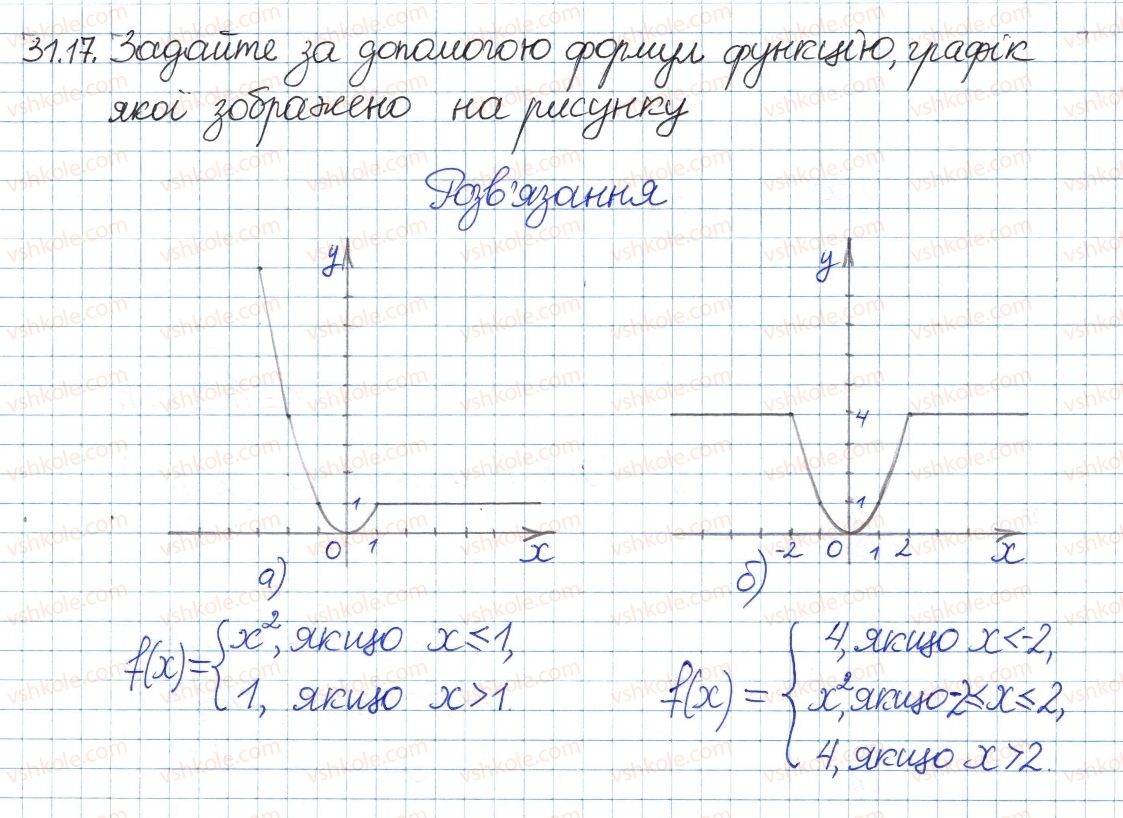 31.17. Задайте за допомогою формул функцію, графік
якої зображено на рисунку
Розв'язання
y
1
0 1 x
а)
y
4
1
-2 0 1 2 x
б)
f(x) = { x², якщо x ≤ 1,
1, якщо x > 1.
f(x) = { 4, якщо x < -2,
x², якщо -2 ≤ x ≤ 2,
4, якщо x > 2.
vshkole.com